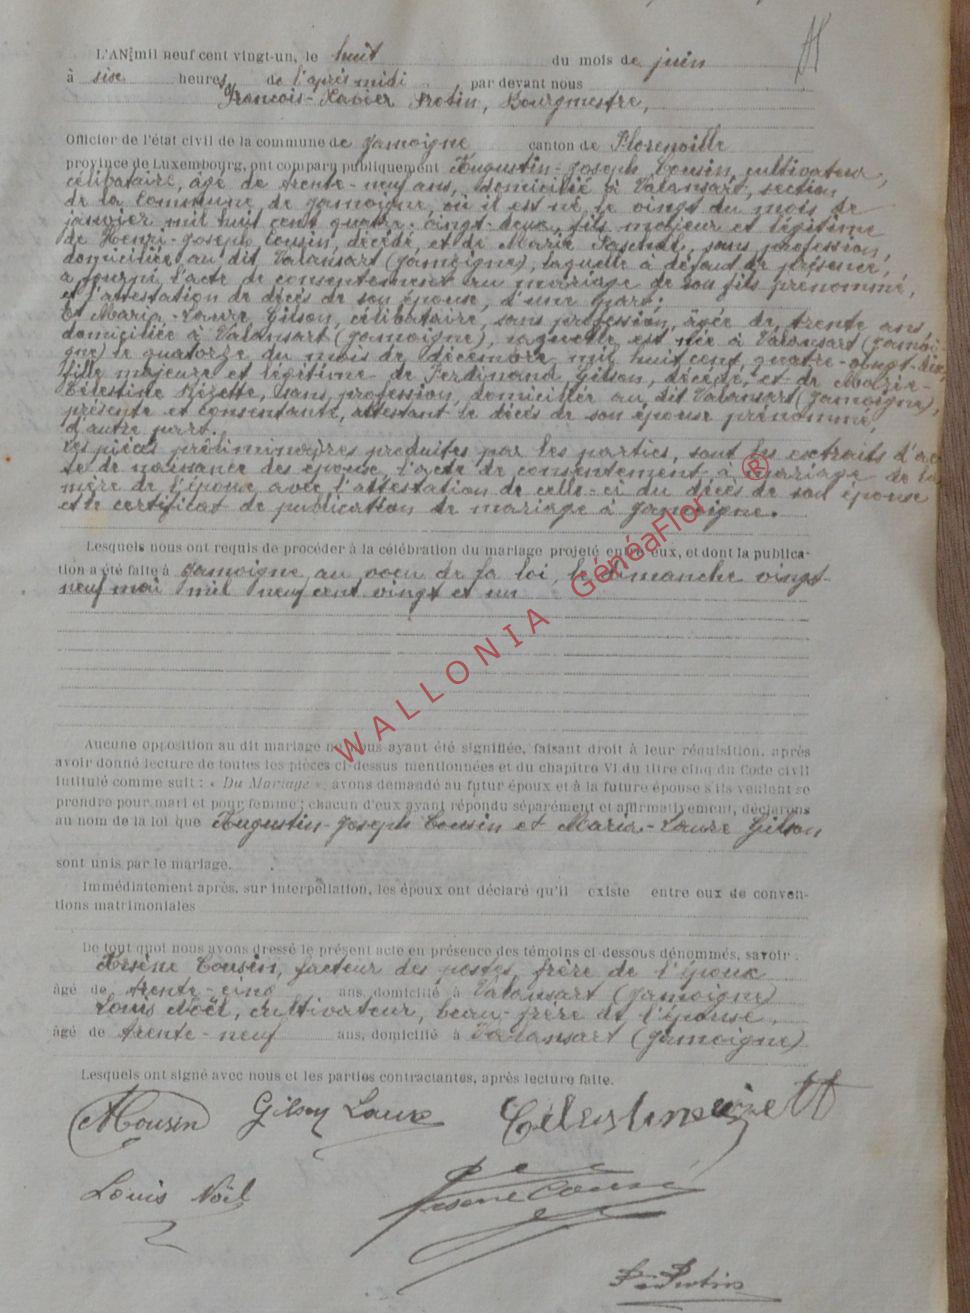 L'AN mil neuf cent vingt-un, le huit du mois de juin
à six heures de l'après midi par devant nous
François-Xavier Frotin, Bourgmestre,
Officier de l'état civil de la commune de Jamoigne canton de Florenville
province de Luxembourg, ont comparu publiquement Augustin-Joseph Cousin, cultivateur,
célibataire, âgé de trente-neuf ans, domicilié à Valansart, section
de la commune de Jamoigne, où il est né, le vingt du mois de
janvier mil huit cent quatre-vingt-deux, fils majeur et légitime
de Henri-Joseph Cousin, décédé, et de Marie Paschal, sans profession,
domiciliée au dit Valansart (Jamoigne), laquelle à défaut de présence,
a fourni l'acte de consentement au mariage de son fils prénommé,
et l'attestation de décès de son épouse, d'une part;
Et Maria-Laure Gilson, célibataire, sans profession, âgée de trente ans,
domiciliée à Valansart (Jamoigne), laquelle est née à Valansart (Jamoi-
gne) le quatorze du mois de décembre mil huit cent quatre-vingt-dix,
fille majeure et légitime de Ferdinand Gilson, décédé, et de Marie-
Célestine Rizette, sans profession, domiciliée au dit Valansart (Jamoigne),
présente et consentante, attestant le décès de son épouse prénommé,
d'autre part.
Les pièces préliminaires produites par les parties, sont les extraits d'ac-
te de naissance des époux, l'acte de consentement à mariage de la
mère de l'époux avec l'attestation de celle-ci du décès de son épouse
et le certificat de publication de mariage à Jamoigne.
Lesquels nous ont requis de procéder à la célébration du mariage projeté entre eux, et dont la publica-
tion a été faite à Jamoigne au voeu de la loi, le dimanche vingt-
neuf mai mil neuf cent vingt et un
WALLONIA GénéaFlor ®
Aucune opposition au dit mariage ne nous ayant été signifiée, faisant droit à leur réquisition, après
avoir donné lecture de toutes les pièces ci-dessus mentionnées et du chapitre VI du titre cinq du Code civil
intitulé comme suit : « Du Mariage », avons demandé au futur époux et à la future épouse s'ils veulent se
prendre pour mari et pour femme ; chacun d'eux ayant répondu séparément et affirmativement, déclarons
au nom de la loi que Augustin-Joseph Cousin et Maria-Laure Gilson
sont unis par le mariage.
Immédiatement après, sur interpellation, les époux ont déclaré qu'il existe entre eux de conven-
tions matrimoniales
De tout quoi nous avons dressé le présent acte en présence des témoins ci-dessous dénommés, savoir :
Arsène Cousin, facteur des postes, frère de l'époux
âgé de trente-cinq ans, domicilié à Valansart (Jamoigne)
Louis Noël, cultivateur, beau-frère de l'épouse,
âgé de trente-neuf ans, domicilié à Valansart (Jamoigne)
Lesquels ont signé avec nous et les parties contractantes, après lecture faite.
ACousin Gilson Laure Celestine rizett
Louis Noël Arsène Cousin